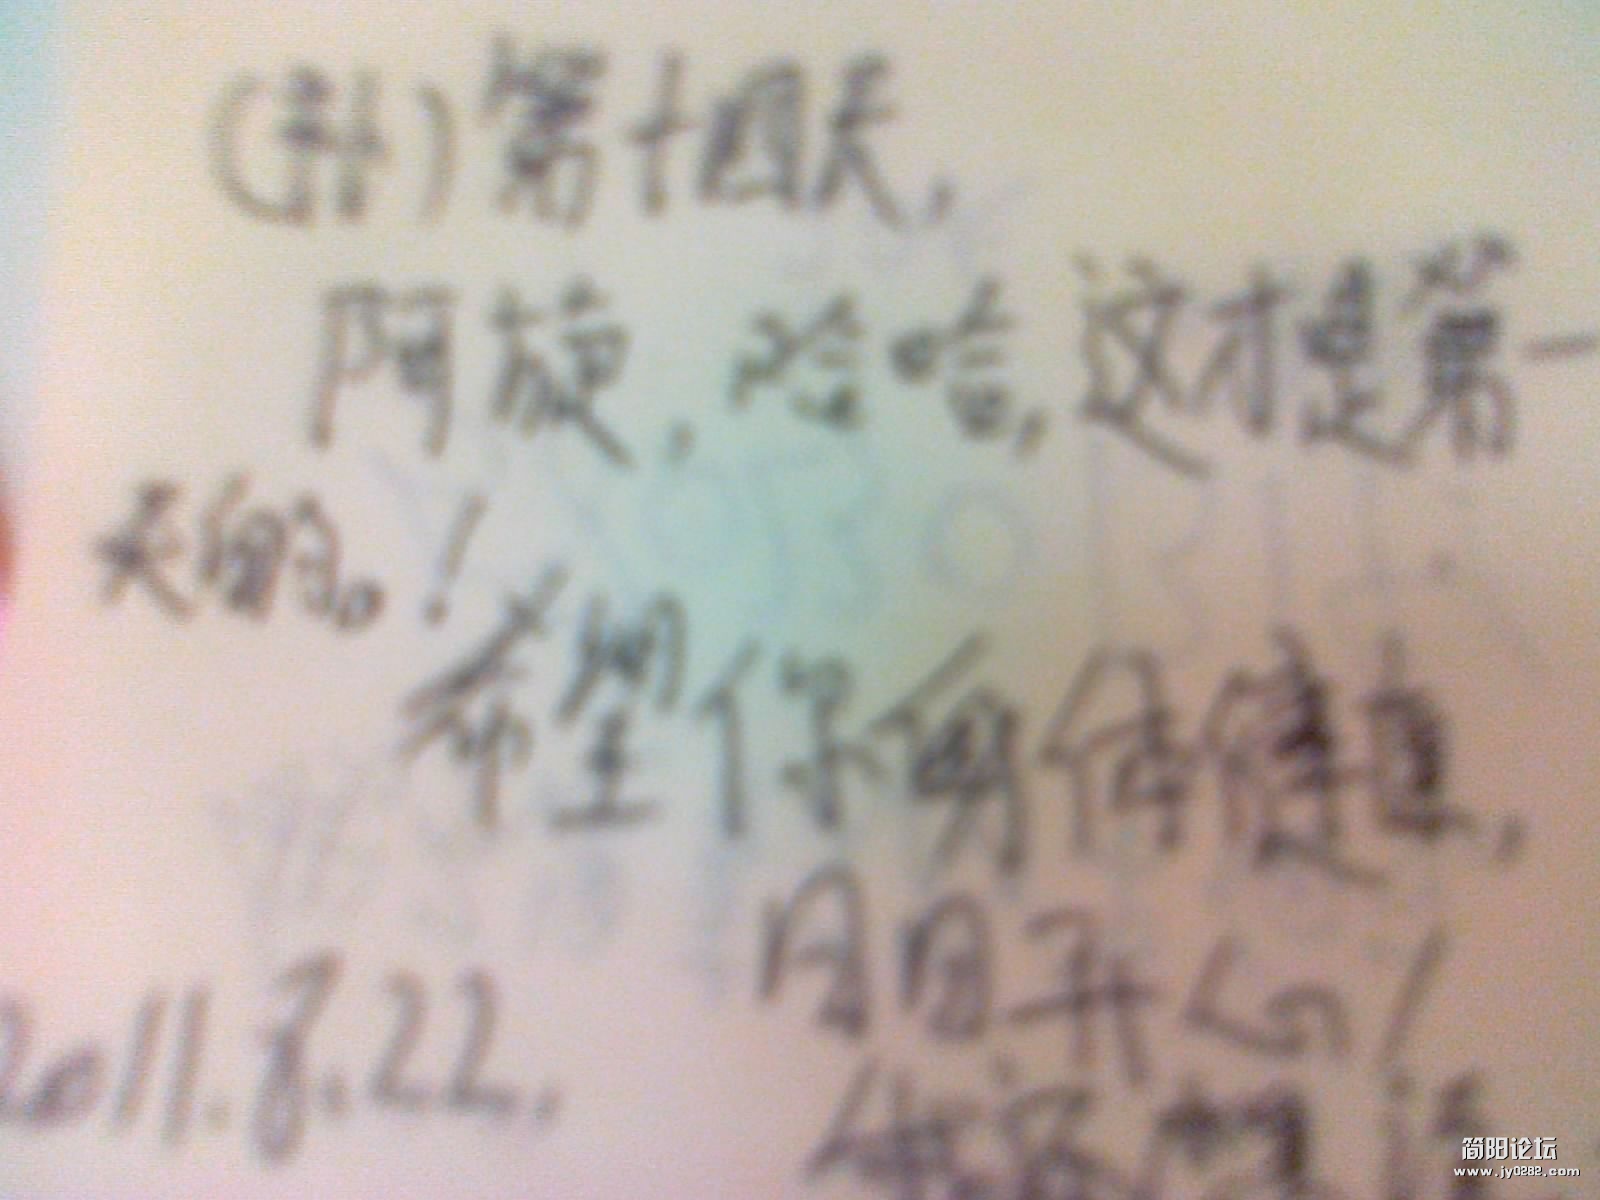 (补)第十四天,
阿旋,哈哈,这才是第一
天的。!
希望你身体健
日日开心!
2011.8.22.
简阳论坛
www.jy0282.com